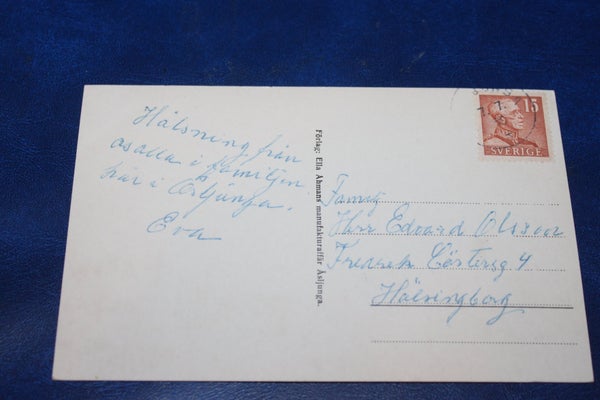 Hälsning från
oss alla i familjen
här i Åsljunga.
Eva
Förlag: Ella Åhmans manufakturaffär Åsljunga.
15
SVERIGE
Familj
Herr Edvard Olsson
Fredrek 4
Hälsingborg